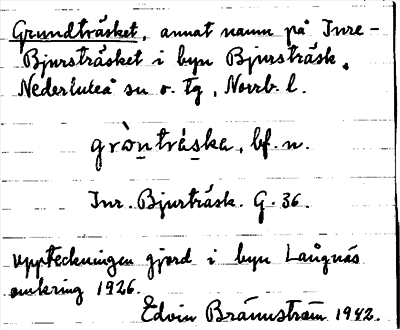 Grundträsket, annat namn på Inre-
Bjursträsket i byn Bjursträsk,
Nederluleå sn o. tg, Norrb. l.
gròntráska, bf. n.
Inr. Bjurträsk. G. 36.
Uppteckningen gjord i byn Långnäs
omkring 1926.
Edvin Brännström 1942.